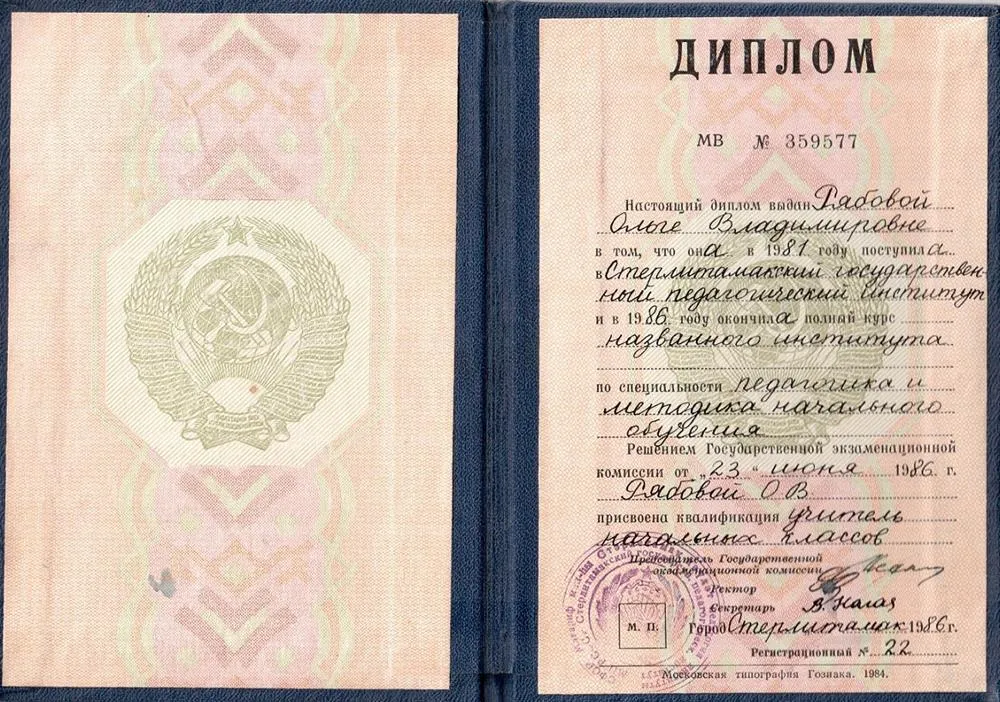 ДИПЛОМ
МВ № 359577
Настоящий диплом выдан Рябовой
Ольге Владимировне
в том, что она в 1981 году поступила
в Стерлитамакский государствен-
ный педагогический институт
и в 1986 году окончила полный курс
названного института
по специальности педагогика и
методика начального
обучения
Решением Государственной экзаменационной
комиссии от „23“ июня 1986 г.
Рябовой О В
присвоена квалификация учитель
начальных классов
Председатель Государственной
экзаменационной комиссии
Ректор
Секретарь
М. П.
Город Стерлитамак 1986 г.
Регистрационный № 22
Московская типография Гознака. 1984.